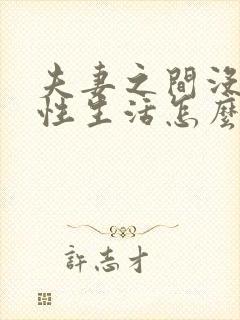 夫妻之間沒
性生活怎麼
許志才